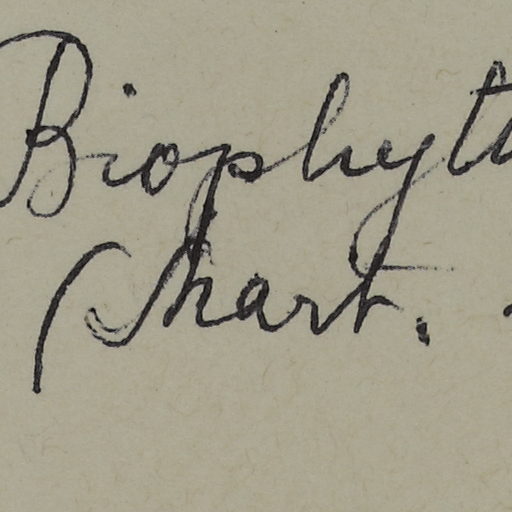 Biophyt
(Thart.